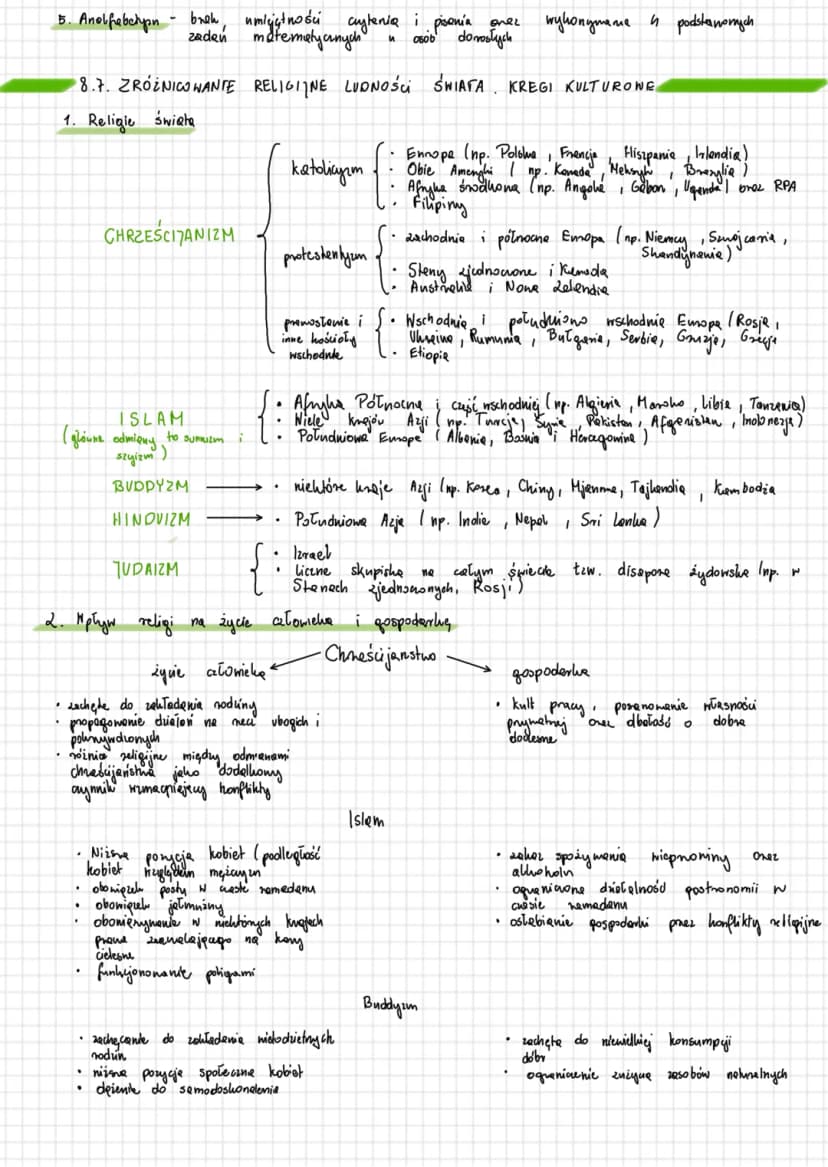 5. Analfabetyzm - brak umiejętności czytania i pisania oraz wykonywania 4 podstawowych
zadań matematycznych u osób dorosłych
8.7. ZRÓŻNICOWANIE RELIGIJNE LUDNOŚCI ŚWIATA. KRĘGI KULTUROWE
1. Religie świata
CHRZEŚCIJANIZM
katolicyzm
• Europa (np. Polska, Francja, Hiszpania, Irlandia)
• Obie Ameryki (np. Kanada, Meksyk, Brazylia)
• Afryka środkowa (np. Angola, Gabon, Uganda) oraz RPA
• Filipiny
protestantyzm
• zachodnia i północna Europa (np. Niemcy, Szwajcaria,
Skandynawia)
• Stany zjednoczone i Kanada
• Australia i Nowa Zelandia
prawosławie i
inne kościoły
wschodnie
• Wschodnia i południowo wschodnia Europa (Rosja,
Ukraina, Rumunia, Bułgaria, Serbia, Gruzja, Grecja
• Etiopia
ISLAM
(główne odmiany to sunnizm i
szyizm)
• Afryka Północna i część wschodniej (np. Algieria, Maroko, Libia, Tanzania)
• Wiele krajów Azji (np. Turcja, Syria, Pakistan, Afganistan, Indonezja)
• Południowa Europa (Albania, Bośnia i Hercegowina)
BUDDYZM
• niektóre kraje Azji (np. Korea, Chiny, Mjanma, Tajlandia, Kambodża
HINDUIZM
• Południowa Azja (np. Indie, Nepal, Sri Lanka)
JUDAIZM
• Izrael
• liczne skupiska na całym świecie tzw. diaspora żydowska (np. w
Stanach zjednoczonych, Rosji)
2. Wpływ religi na życie człowieka i gospodarkę
Chrześcijaństwo
życie człowieka
gospodarka
• zachęta do zakładania rodziny
• propagowanie działań na rzecz ubogich i
pokrzywdzonych
• różnice religijne między odmianami
chrześcijaństwa jako dodatkowy
czynnik wzmacniający konflikty
• kult pracy, poszanowanie własności
prywatnej oraz dbałość o dobra
doczesne
Islam
• Niższa pozycja kobiet (podległość
kobiet względem mężczyzn
• obowiązek postu w czasie ramadanu
• obowiązek jałmużny
• obowiązywanie w niektórych krajach
prawa zezwalającego na kary
cielesne
• funkcjonowanie poligami
• zakaz spożywania wieprzowiny oraz
alkoholu
• ograniczona działalność gastronomii w
czasie ramadanu
• osłabianie gospodarki przez konflikty religijne
Buddyzm
• zachęcanie do zakładania wielodzietnych
rodzin
• niższa pozycja społeczna kobiet
• dążenie do samodoskonalenia
• zachęta do niewielkiej konsumpcji
dóbr
• ograniczenie zużycia zasobów naturalnych